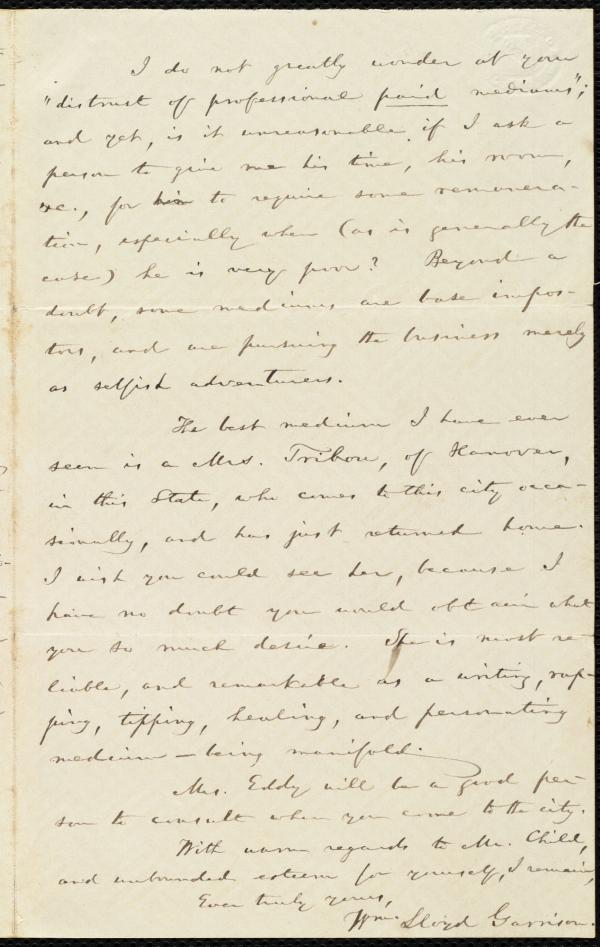 I do not greatly wonder at your
"distrust of professional paid mediums";
and yet, is it unreasonable, if I ask a
person to give me his time, his room,
&c., for him to require some remunera-
tion, especially when (as is generally the
case) he is very poor? Beyond a
doubt, some mediums are base impos-
tors, and are pursuing the business merely
as selfish adventurers.
The best medium I have ever
seen is a Mrs. Tribou, of Hanover,
in this State, who comes to this city occa-
sionally, and has just returned home.
I wish you could see her, because I
have no doubt you would obtain what
you so much desire. She is most re-
liable, and remarkable as a writing, rap-
ping, tipping, healing, and personating
medium — being manifold.
Mrs. Eddy will be a good per-
son to consult when you come to the city.
With warm regards to Mr. Child,
and unbounded esteem for yourself, I remain,
Ever truly yours,
Wm. Lloyd Garrison.